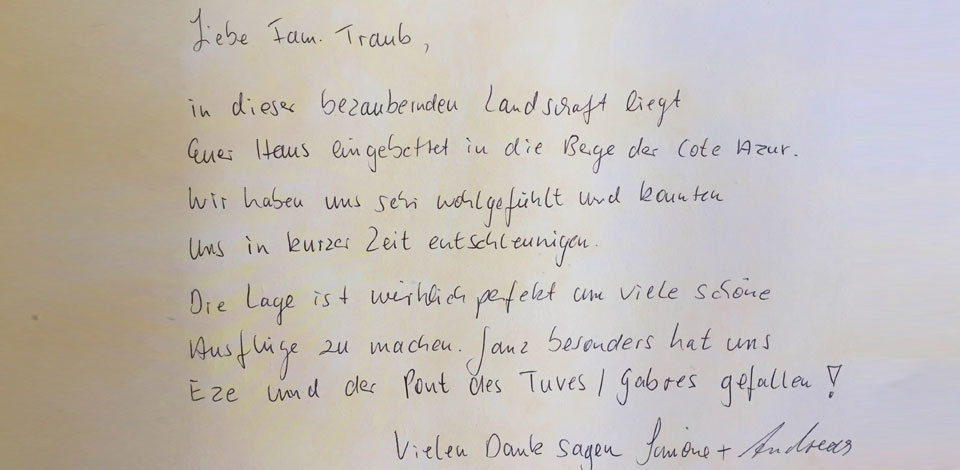 Liebe Fam. Traub,
in dieser bezaubernden Landschaft liegt
Euer Haus eingebettet in die Berge der Cote Azur.
Wir haben uns sehr wohlgefühlt und konnten
uns in kurzer Zeit entschleunigen.
Die Lage ist wirklich perfekt um viele schöne
Ausflüge zu machen. Ganz besonders hat uns
Eze und der Pont des Tuves / Gabres gefallen !
Vielen Dank sagen Simone + Andreas